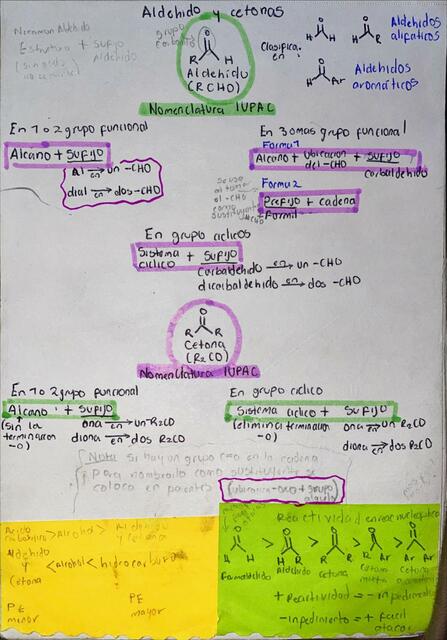 Aldehido y cetonas
Nomenman Aldehido
Estructura + Sufijo
Aldehido
grupo
carbonilo
O
R H
Aldehido
(RCHO)
Clasifica
en
O
H H
O
R H
Aldehidos
alifaticos
O
H Ar
Aldehidos
aromáticos
Nomenclatura IUPAC
En 1 o 2 grupo funcional
Alcano + Sufijo
Al en un -CHO
dial en dos -CHO
En 3 o mas grupo funcional
Forma 1
Alcano + Ubicacion + Sufijo
del -CHO
carbaldehido
Forma 2
Prefijo + cadena
Formil
se usa
al tomar
el -CHO
como
sustituyente
En grupo ciclicos
Sistema + Sufijo
ciclico
carbaldehido en un -CHO
dicarbaldehido en dos -CHO
O
R R
Cetona
(R2CO)
Nomenclatura IUPAC
En 1 o 2 grupo funcional
Alcano + Sufijo
(sin la
terminacion
-o)
ona en un R2CO
diona en dos R2CO
En grupo ciclico
Sistema ciclico + Sufijo
(elimina terminacion
-o)
ona en un R2CO
diona en dos R2CO
Nota: Si hay un grupo c=o en la cadena
Para nombrarlo como sustituyente se
coloca en parentes
(ubicacion-oxo + grupo
alquilo)
Acido
carboxilico > Alcohol > Aldehido
y cetona
Aldehido
y < alcohol < hidrocarburo
Cetona
PE
menor
PE
mayor
Reactividad en reac nucleofilica
O O O O O
H H > R H > R R > R Ar > Ar Ar
Formaldehido Aldehido cetona Cetona mixta Cetona
+ Reactividad = - impedimento
- impedimento = + facil
atacar